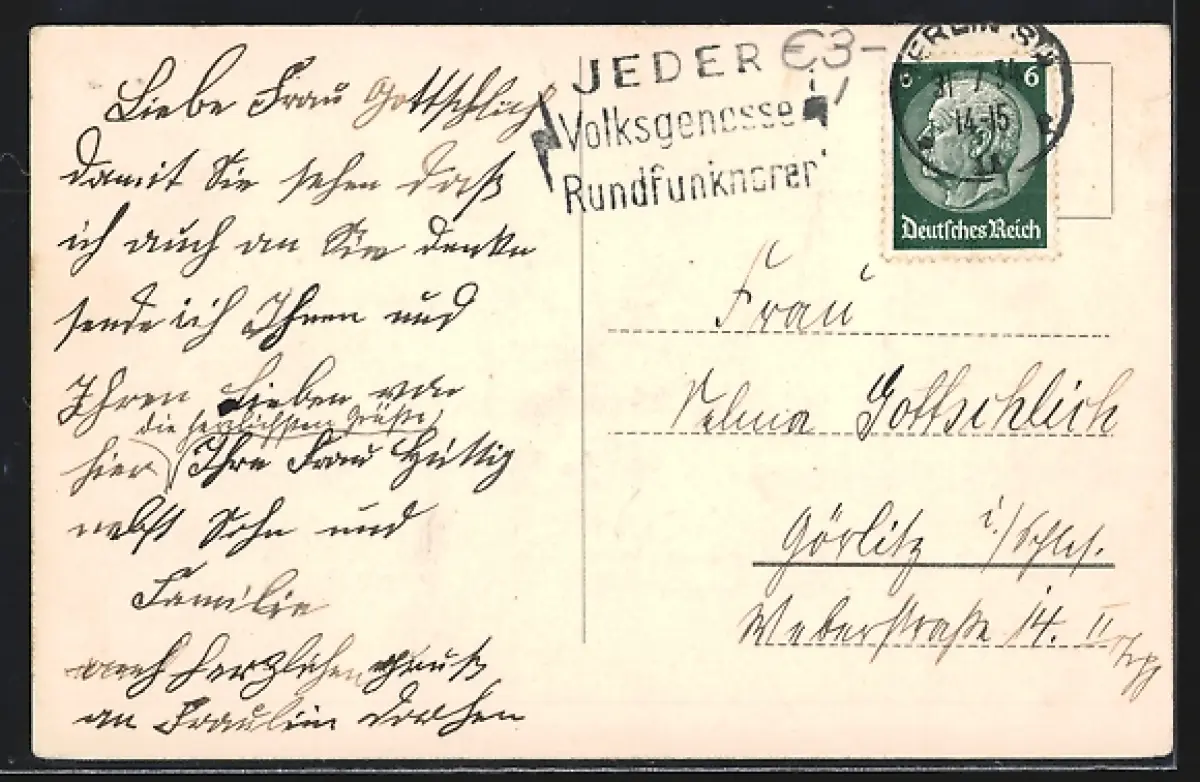 Liebe Frau Gottschlich
damit Sie sehen daß
ich auch an Sie denke
sende ich Ihnen und
Ihren Lieben von
die herzlichsten Grüße
hier Ihre Frau Hüttig
nebst Sohn und
Familie
auch herzlichen Gruß
an Fräulein
JEDER
Volksgenosse
Rundfunkhörer
€3-
BERLIN SW
31 7 34
14-15
6
Deutsches Reich
Frau
Selma Gottschlich
Görlitz i./Schles.
Weberstraße 14. II